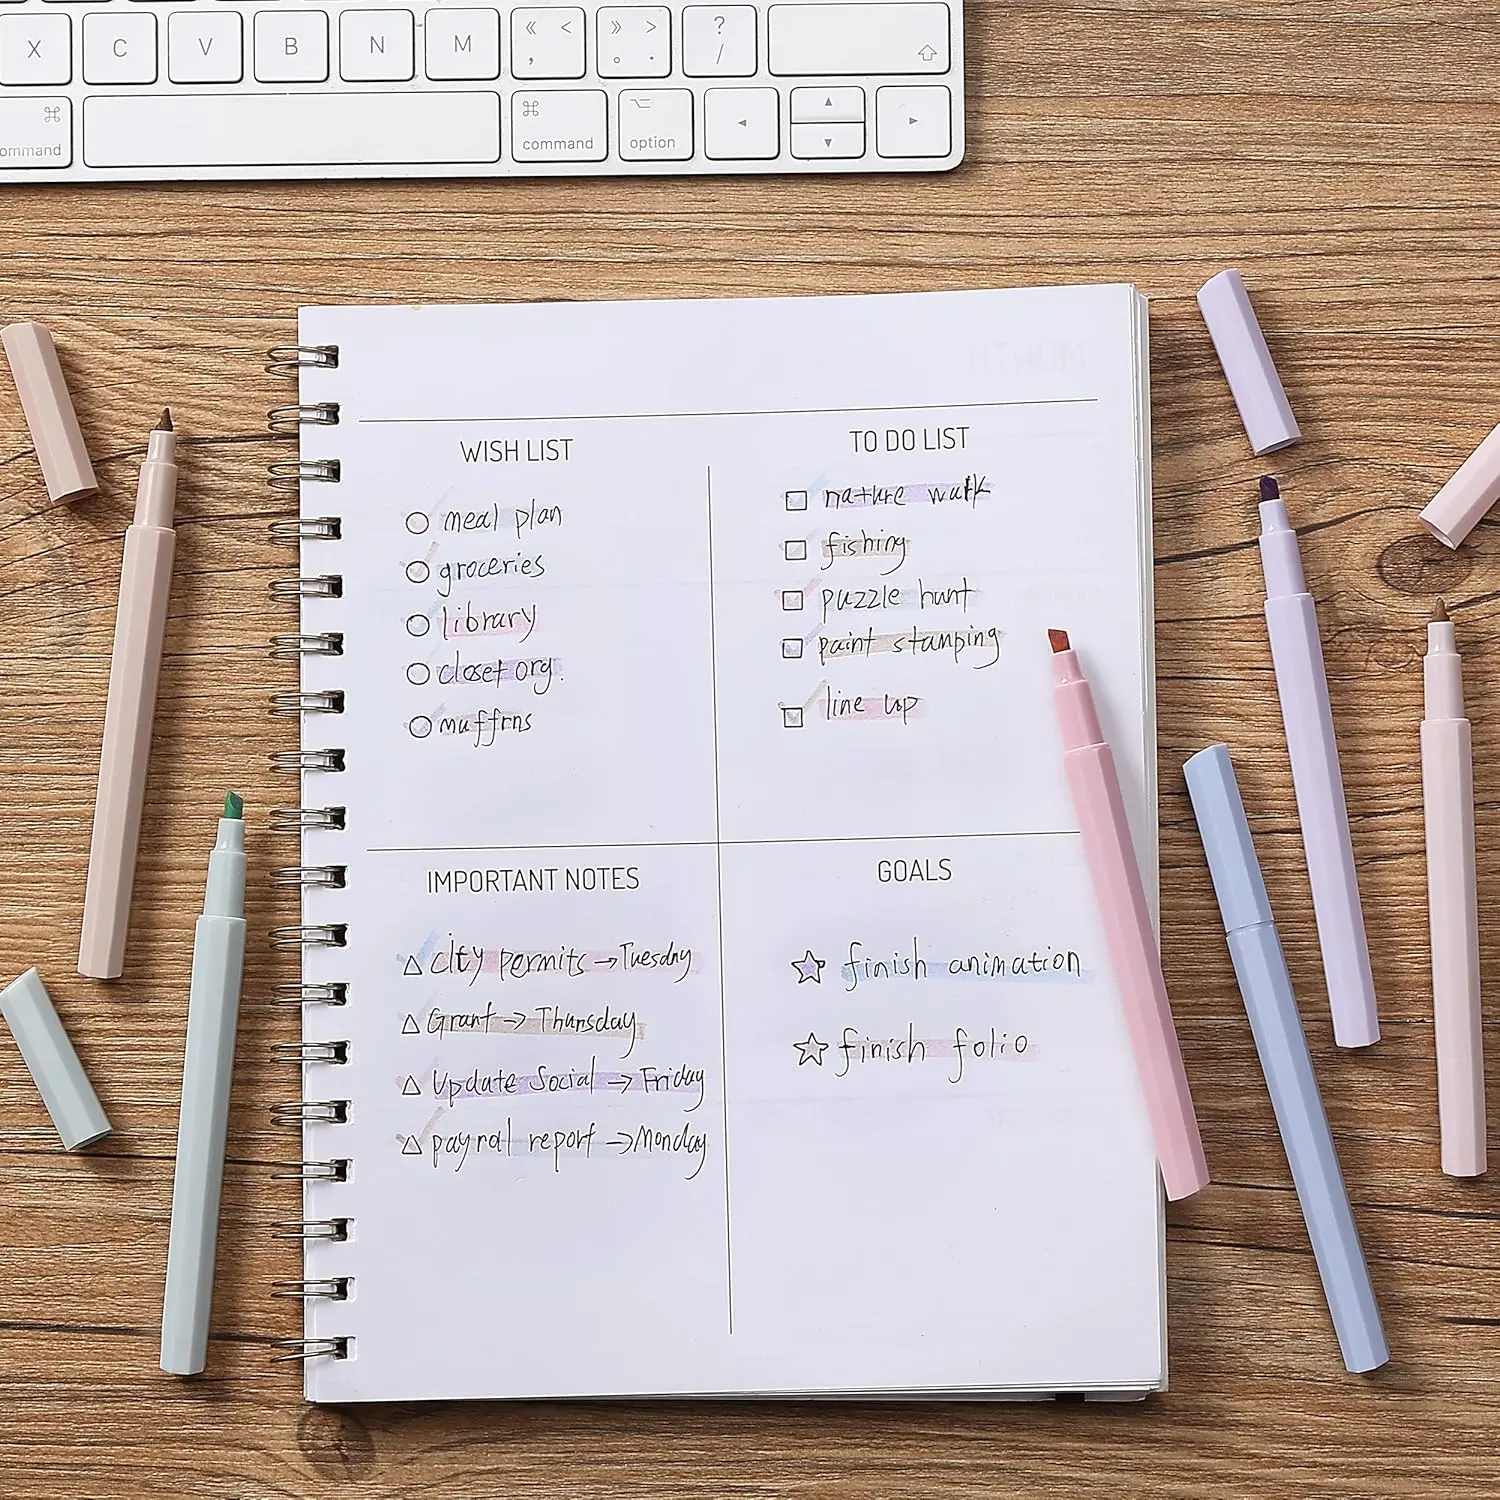 X C V B N M « < , » > 。 . ? /
⌘ command ⌘ command ⌥ option ◂ ▴ ▾ ▸
MONTH
WISH LIST
meal plan
groceries
library
closet org.
muffrns
TO DO LIST
nature walk
fishing
puzzle hunt
paint stamping
line up
IMPORTANT NOTES
city permits → Tuesday
Grant → Thursday
Update Social → Friday
payrol report → Monday
GOALS
finish animation
finish folio